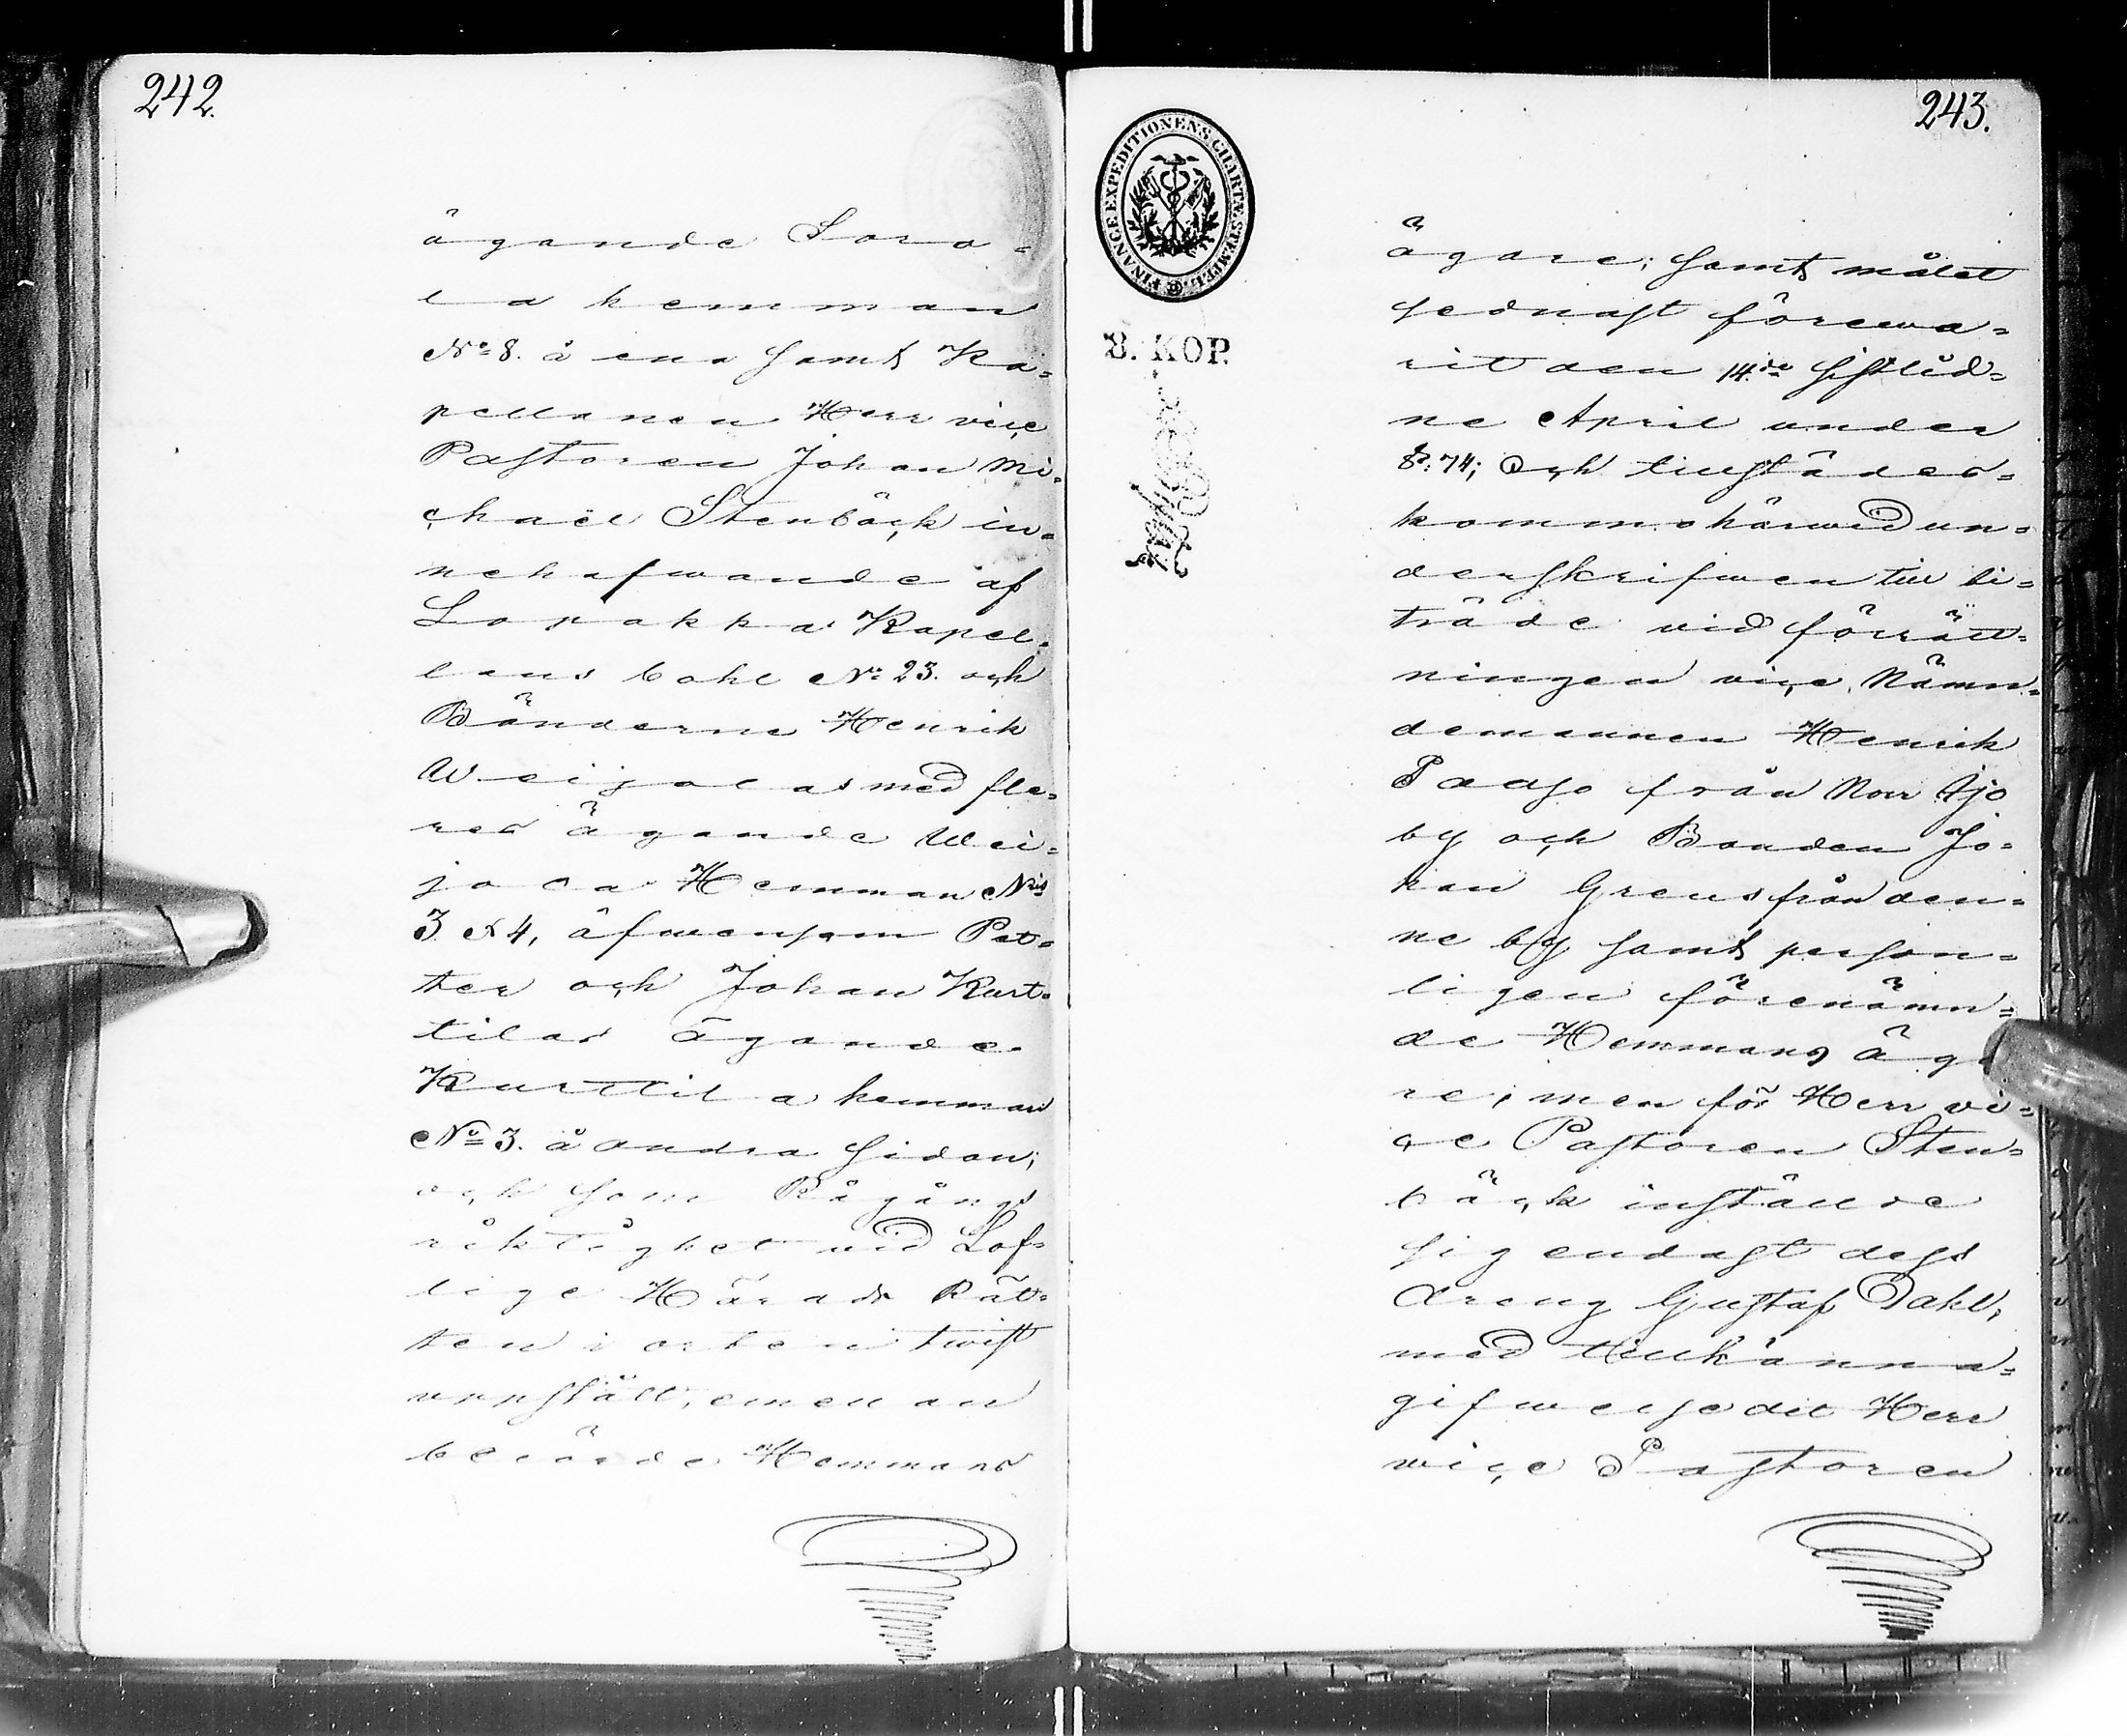 242.
ägande Soro-
la hemman
No 8. å ena samt Ka-
pellanen Herr vice
Pastoren Johan Mi-
chaël Stenbäck in-
nehafwande af
Lopakka Kapel-
lans bohl No 23. och
Bönderne Henrik
Weijolas med fle-
res ägande Wei-
jola Hemman Nris
3 & 4, äfwensom Pet-
ter och Johan Kurt-
tilas ägande
Kurttila hemman
No 3. å andra sidan;
och som Rågångs
riktighet vid Lof-
lige Härads Rät-
ten i orten twist
uppstått, emellan
berörde Hemmans
243.
FINANCE EXPEDITIONENS CHARTÆ STEMPEL
8. KOP.
ägare; samt målet
sednast förewa-
rit den 14de sistlid-
ne April under
§. 74; Och tillstädes-
kommo härwid un-
derskrifwen till bi-
träde vid förrätt-
ningen vice Nämn-
demannen Henrik
Paaso från Norr Ijo
by och Bonden Jo-
han Grens från den-
ne by samt person-
ligen förenämn-
de Hemmans äga
re; men för Herr vi-
ce Pastoren Sten-
bäck inställde
sig endast dess
dreng Gustaf Dahl,
med tillkänna-
gifwelse det Herr
vice Pastoren